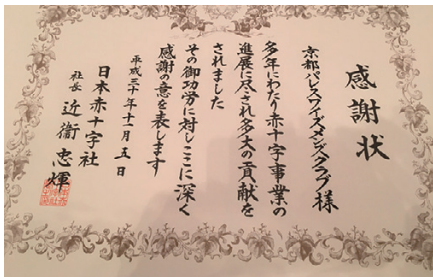 感謝状
京都パレスワイズメンズクラブ様
多年にわたり赤十字事業の
進展に尽され多大の貢献を
されました
その御功労に対しここに深く
感謝の意を表します
平成三十年十一月五日
日本赤十字社
社長 近衞忠煇